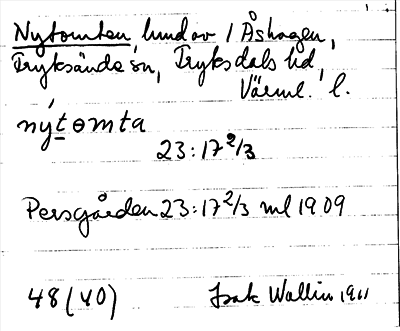 Nytomten, hmd av 1 Åshagen,
Fryksände sn, Fryksdals hd,
Värml. l.
ný̱tɵmta
23:17 2/3
Persgården 23:17 2/3 ml 1909
48 (40)
Isak Wallin 1911